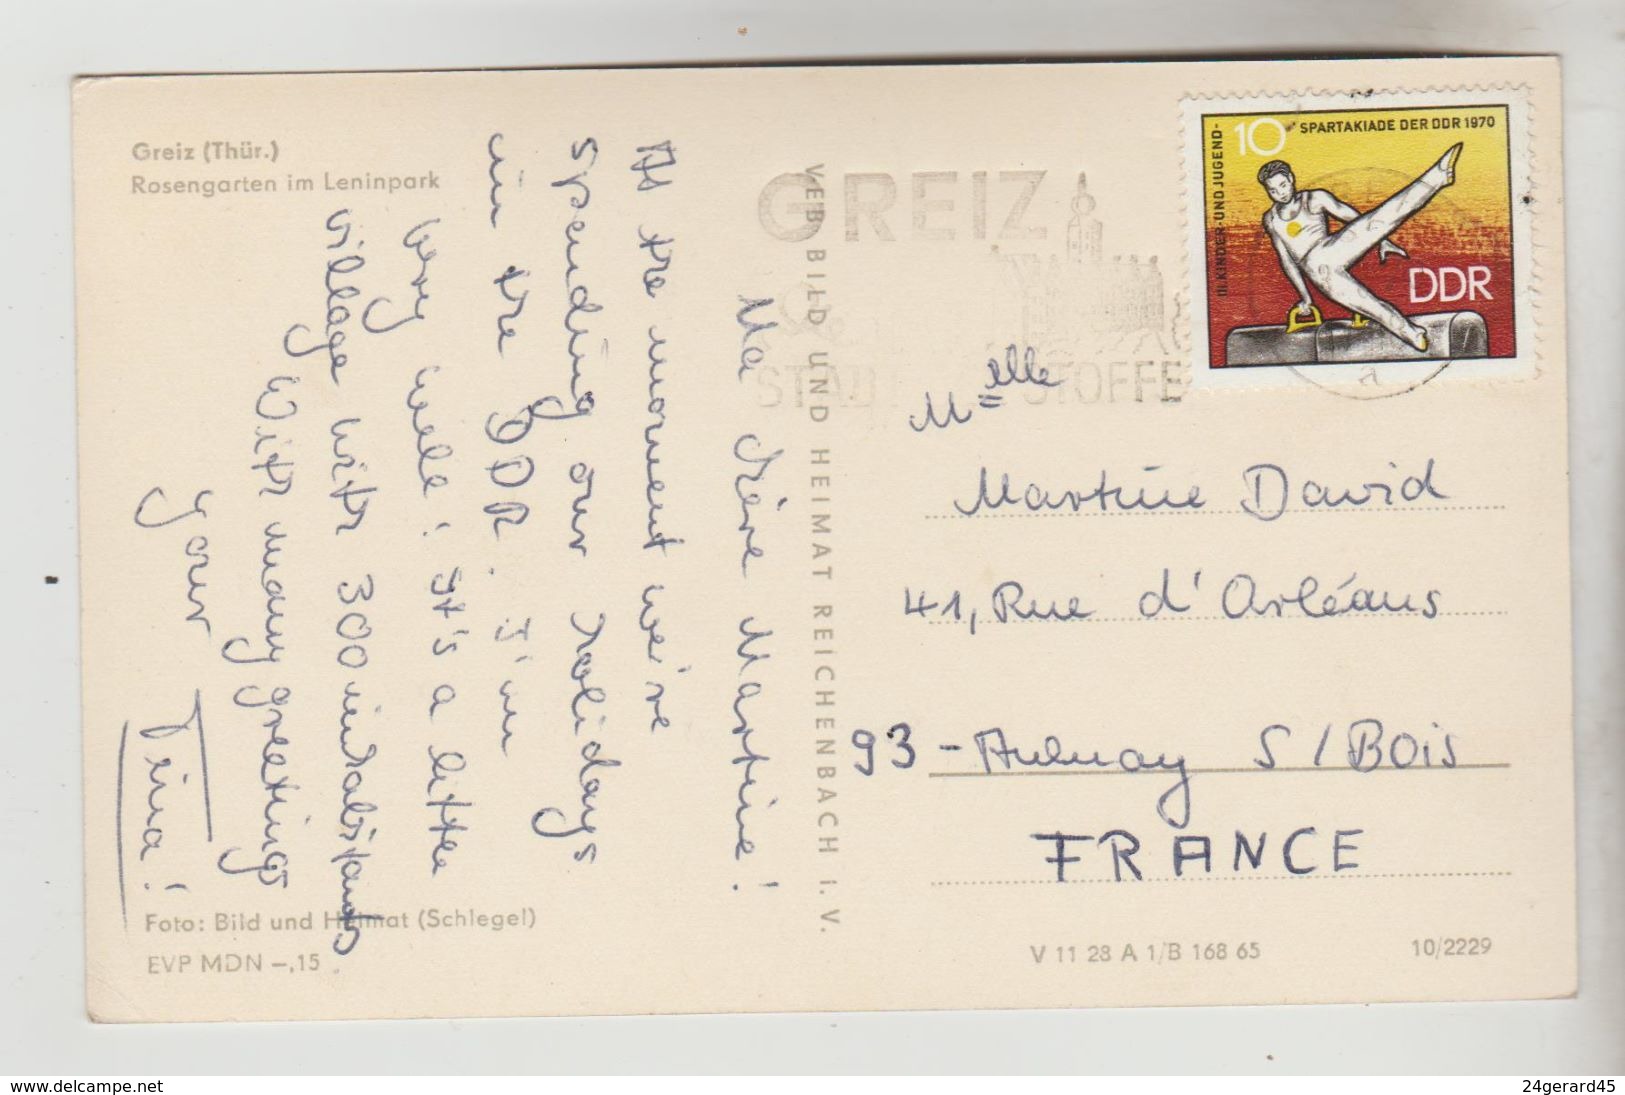 Greiz (Thür.)
Rosengarten im Leninpark
Ma chère Martine!
At the moment we're
spending our holidays
in the DDR. I'm
very well! It's a little
village with 300 inhabitants.
With many greetings
Your
Tina!
Foto: Bild und Heimat (Schlegel)
EVP MDN –,15
VEB BILD UND HEIMAT REICHENBACH I. V.
GREIZ
STOFFE
III. KINDER- UND JUGEND-
SPARTAKIADE DER DDR 1970
10
DDR
Melle
Martine David
41, Rue d'Orléans
93 - Aulnay S/Bois
FRANCE
V 11 28 A 1/B 168 65
10/2229
www.delcampe.net
24gerard45